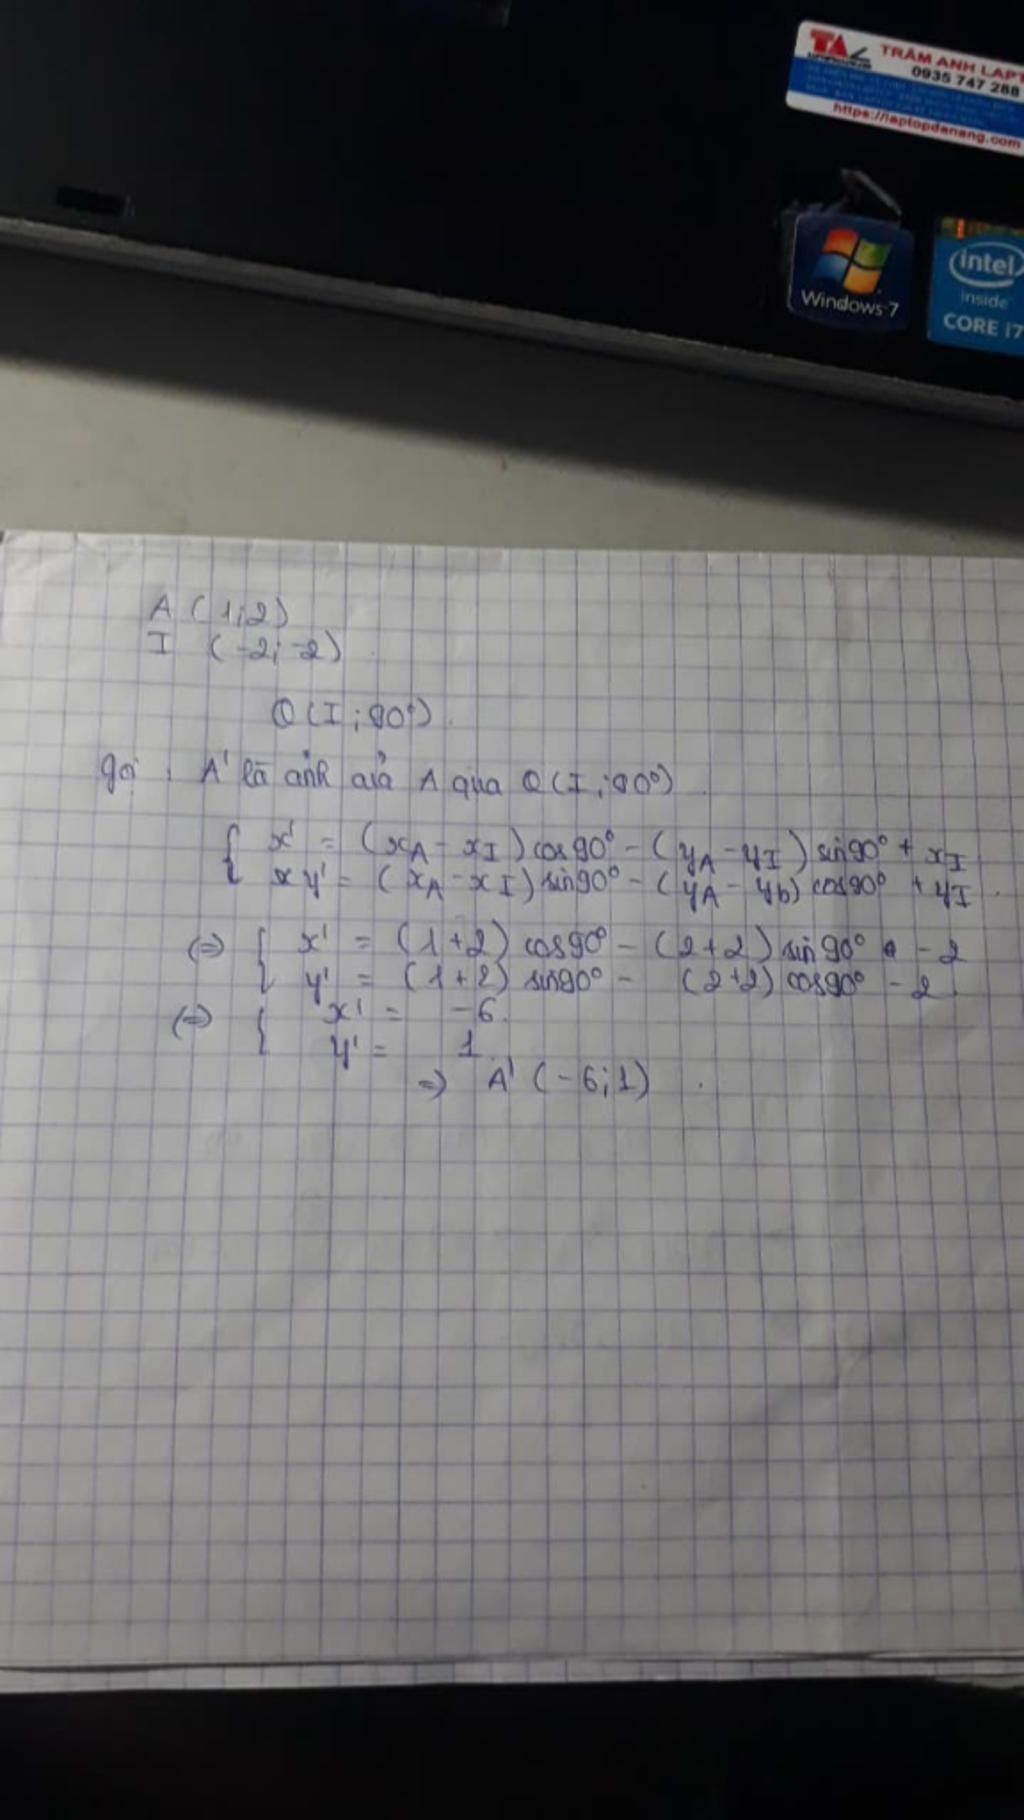 TRÂM ANH LAPT
0935 747 288
https://laptopdanang.com
Windows 7
intel
inside
CORE i7
A (1;2)
I (-2;-2)
Q(I;90°).
gọi : A' là ảnh của A qua Q(I;90°)
{ x' = (xA - xI) cos90° - (yA - yI) sin90° + xI
x y' = (xA - xI) sin90° - (yA - yb) cos90° + yI.
(=) { x' = (1+2) cos90° - (2+2) sin90° - 2
y' = (1+2) sin90° - (2+2) cos90° - 2
(=) { x' = -6.
y' = 1
=) A' (-6;1).